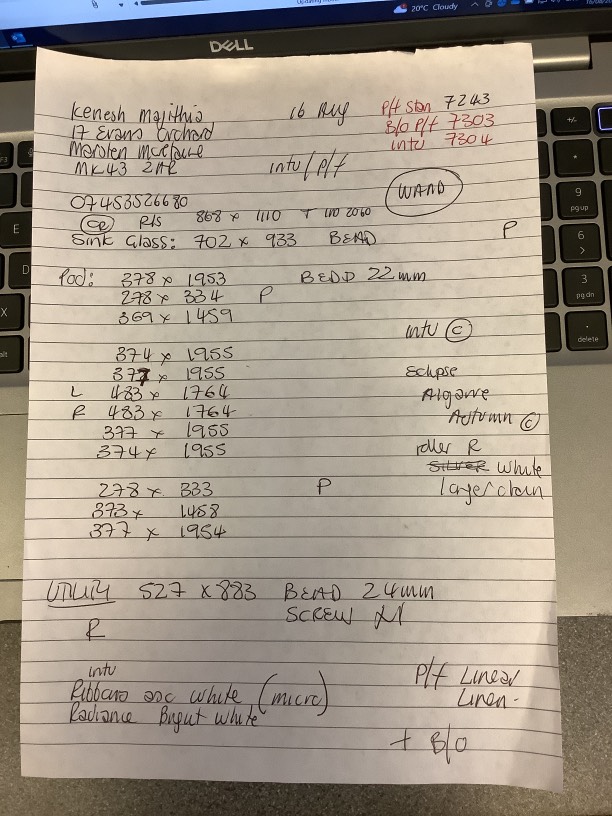 20°C Cloudy
DELL
Kenesh Majithia 16 Aug P/f Stan 7243
17 Evans Orchard B/O P/f 7303
Marsten intu 7304
MK43 intu/P/f
07453526680 WAND
R/S 868 x 1110 + 1110 2060
Sink Glass: 702 x 933 BEAD P
Pod: 378 x 1953 BEDD 22mm
278 x 334 P
369 x 1459
intu ©
374 x 1955
377 x 1955 Eclipse
L 483 x 1764 Algarve
R 483 x 1764 Autumn ©
377 x 1955
374 x 1955 roller R
SILVER White
278 x 333 P large/chain
373 x 1458
377 x 1954
UTILITY 527 x 883 BEAD 24mm
SCREW
R
intu P/f Linear
Ribbons asc white (micro) Linen.
Radiance Brigut white
+ B/O